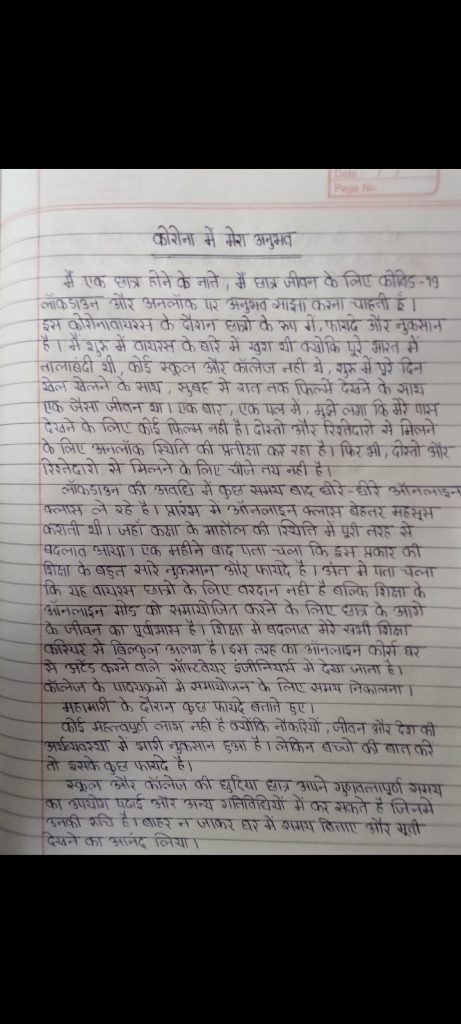 Date / /
Page No.
कोरोना में मेरा अनुभव
मैं एक छात्र होने के नाते, मैं छात्र जीवन के लिए कोविड-19
लॉकडाउन और अनलॉक पर अनुभव साझा करना चाहती हूँ।
इस कोरोनावायरस के दौरान छात्रों के रूप में, फायदे और नुकसान
है। मैं शुरू में वायरस के बारे में खुश थी क्योंकि पूरे भारत में
तालाबंदी थी, कोई स्कूल और कॉलेज नही थे, शुरू में पूरे दिन
खेल खेलने के साथ, सुबह से रात तक फिल्में देखने के साथ
एक जैसा जीवन था। एक बार, एक पल में, मुझे लगा कि मेरे पास
देखने के लिए कोई फिल्म नहीं है। दोस्तो और रिश्तेदारो से मिलने
के लिए अनलॉक स्थिति की प्रतीक्षा कर रहा है। फिर भी, दोस्तो और
रिश्तेदारो से मिलने के लिए चीजे तय नही है।
लॉकडाउन की अवधि में कुछ समय बाद धीरे-धीरे ऑनलाइन
क्लास ले रहे है। प्रारंभ में ऑनलाइन क्लास बेहतर महसूस
कराती थी। जहाँ कक्षा के माहौल की स्थिति में पूरी तरह से
बदलाव आया। एक महीने बाद पता चला कि इस प्रकार की
शिक्षा के बहुत सारे नुकसान और फायदे है। अंत में पता चला
कि यह वायरस छात्रो के लिए वरदान नही है बल्कि शिक्षा के
ऑनलाइन मोड को समायोजित करने के लिए छात्र के आगे
के जीवन का पूर्वाभास है। शिक्षा में बदलाव मेरे सभी शिक्षा
करियर से बिल्कुल अलग है। इस तरह का ऑनलाइन कोर्स घर
से अटेंड करने वाले सॉफ्टवेयर इंजीनियर्स में देखा जाता है।
कॉलेज के पाठ्यक्रमों में समायोजन के लिए समय निकालना।
महामारी के दौरान कुछ फायदे बताते हुए।
कोई महत्वपूर्ण लाभ नही है क्योकि नौकरियों, जीवन और देश की
अर्थव्यवस्था में भारी नुकसान हुआ है। लेकिन बच्चो की बात करे
तो इसके कुछ फायदे है।
स्कूल और कॉलेज की छुट्टिया छात्र अपने गुणवत्तापूर्ण समय
का उपयोग पढ़ाई और अन्य गतिविधियों में कर सकते है जिनमे
उनकी रुचि है। बाहर न जाकर घर में समय बिताए और मूवी
देखने का आनंद लिया।